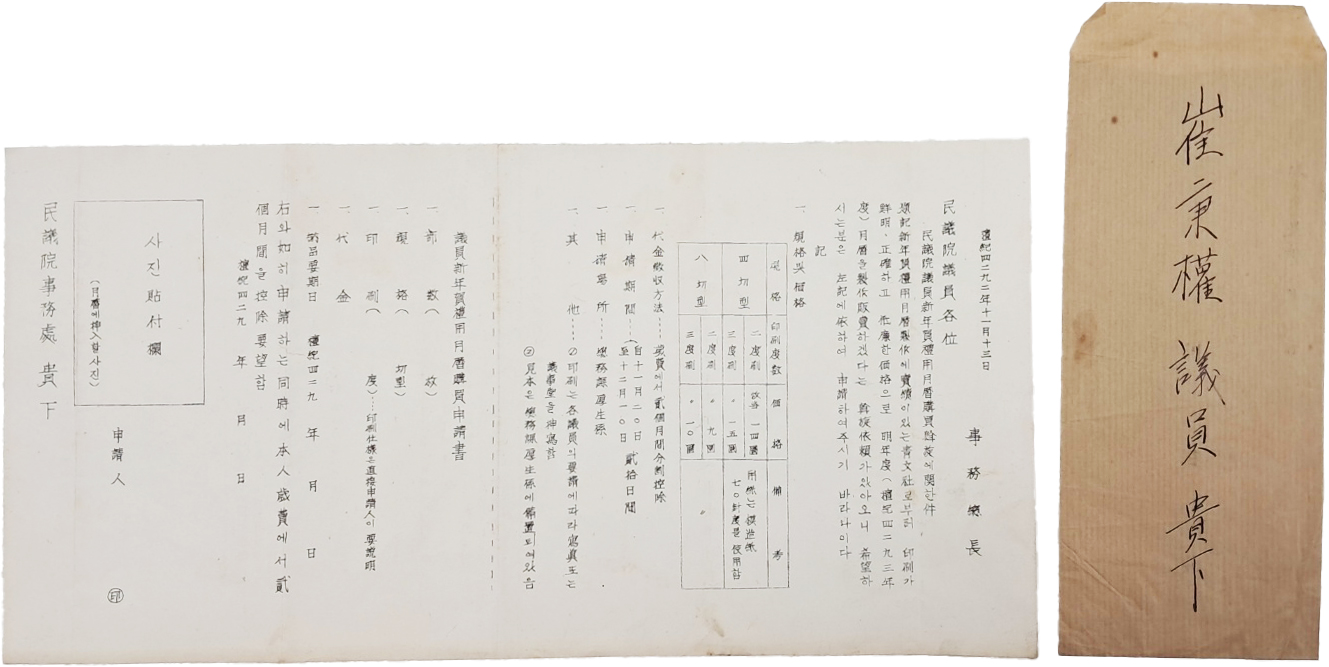 檀紀四二九二年十一月十三日
事務總長
民議院議員各位
民議院議員新年賀禮用月曆購買斡旋에關한件
頭記新年賀禮用月曆製作에實績이있는靑文社로부터 印刷가
鮮明、正確하고 低廉한価格으로 明年度(檀紀四二九三年
度)月曆을製作販賣하겠다는 斡旋依賴가있아오니 希望하
시는분은 左記에依하여 申請하여주시기 바라나이다
記
一、規格및価格
規格 印刷度数 価格 備考
四切型 二度刷 改善 一四圜 用紙는模造紙
三度刷 〃 一五圜 七〇斤度를使用함
八切型 二度刷 〃 九圜 〃
三度刷 〃 一〇圜
一、代金徵収方法……歲費에서貳個月間分割控除
一、申請期間……(自十一月二〇日 至十二月一〇日 貳拾日間
一、申請場所……總務課厚生係
一、其他……①印刷는各議員의要請에따라寫眞또는
議事堂을挿寫함
②見本은總務課厚生係에備置되여있음
議員新年賀禮用月曆購買申請書
一、部数( 枚)
一、規格( 切型)
一、印刷( 度)……印刷仕樣은直接申請人이要說明
一、代金
一、納品要期日 檀紀四二九 年 月 日
右와如히申請하는同時에本人歲費에서貳
個月間을控除要望함
檀紀四二九 年 月 日
申請人 ㊞
사진貼付欄
(月曆에揷入할사진)
民議院事務處 貴下
崔秉權 議員 貴下